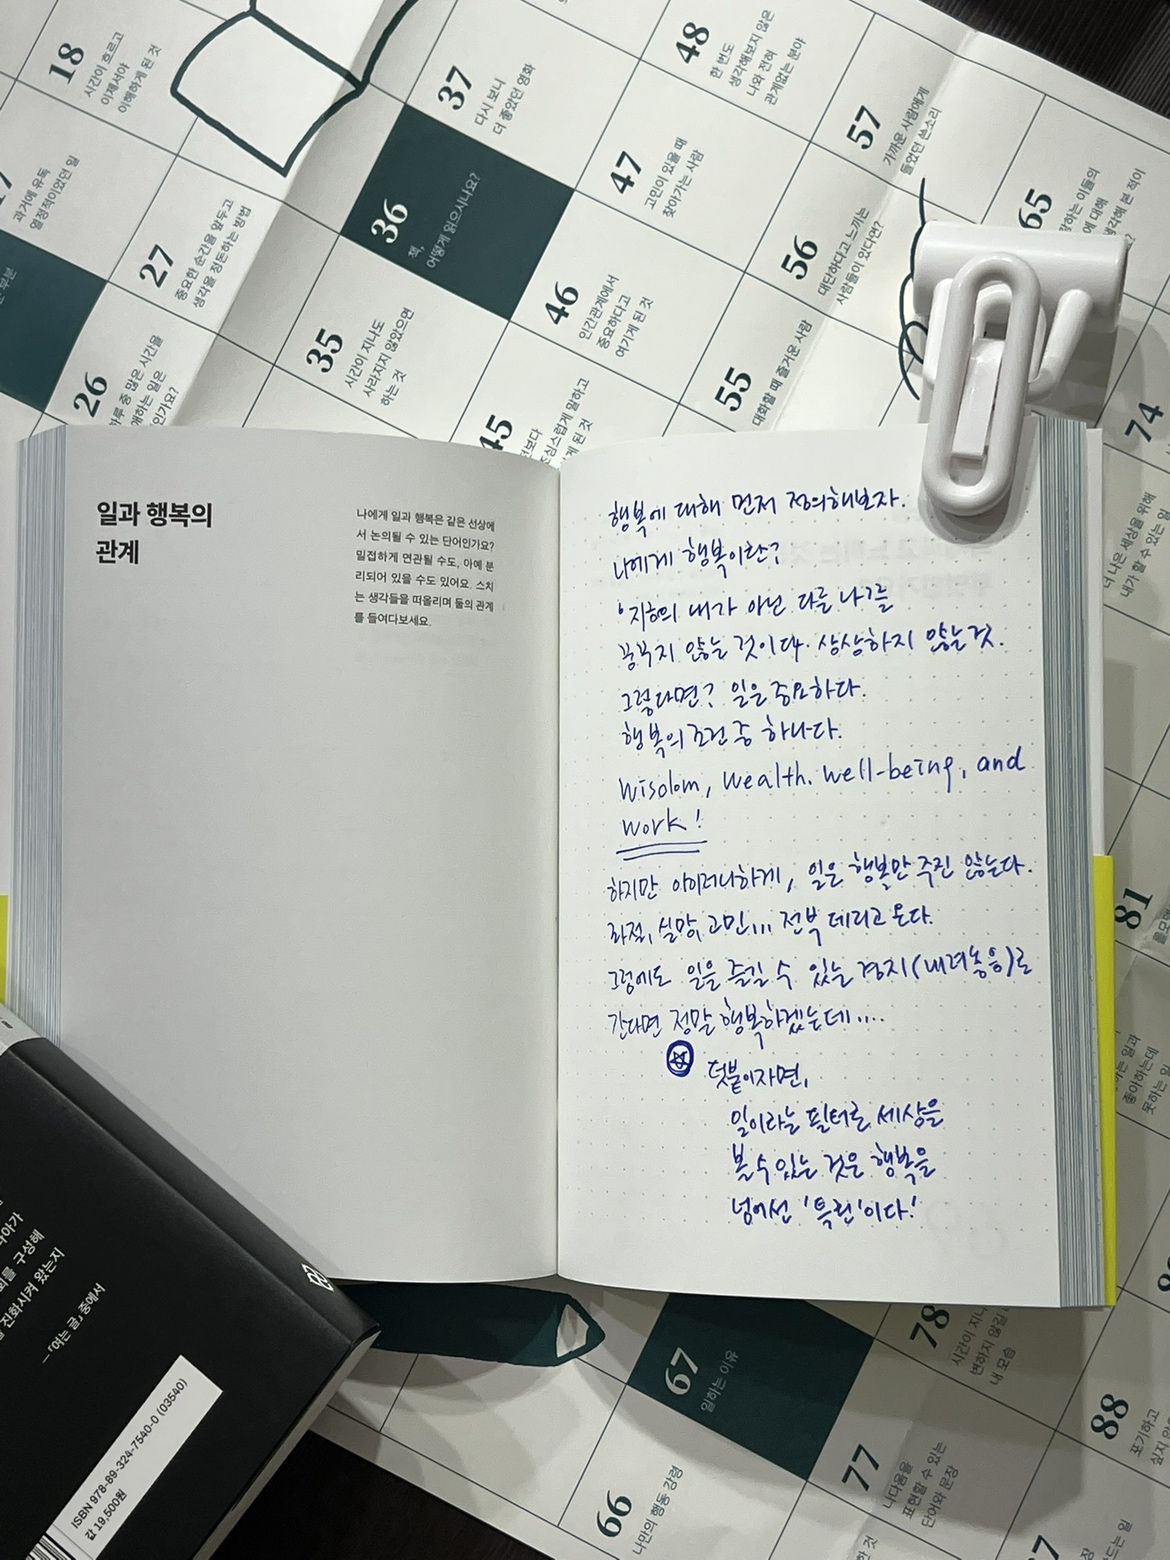 18
시간이 흐르고
이제서야
이해하게 된 것
37
다시 보니
더 좋았던 영화
48
한 번도
생각해보지 않은
나와 전혀
관계없는 분야
57
가까운 사람에게
들었던 쓴소리
65
에 대해
생각해 본 적이
과거에 유독
열정적이었던 일
27
중요한 순간을 앞두고
생각을 정돈하는 방법
36
책,
어떻게 읽으시나요?
47
고민이 있을 때
찾아가는 사람
56
대단하다고 느끼는
사람들이 있다면?
26
하루 중 많은 시간을
하는 일은
인가요?
35
시간이 지나도
사라지지 않았으면
하는 것
46
인간관계에서
중요하다고
여기게 된 것
55
대화할 때 즐거운 사람
45
조심스럽게 말하고
게 된 것
74
더 나은 세상을 위해
내가 할 수 있는
일과 행복의
관계
나에게 일과 행복은 같은 선상에
서 논의될 수 있는 단어인가요?
밀접하게 연관될 수도, 아예 분
리되어 있을 수도 있어요. 스치
는 생각들을 떠올리며 둘의 관계
를 들여다보세요.
행복에 대해 먼저 정의해보자.
나에게 행복이란?
지하의 내가 아닌 다를 나?를
꿈꾸지 않는 것이다. 상상하지 않는 것.
그렇다면? 일은 중요하다.
행복의 조건 중 하나다.
Wisdom, Wealth. Well-being, and
work!
하지만 아이러니하게, 일은 행복만 주진 않는다.
좌절, 실망, 고민... 전부 데리고 온다.
그럼에도 일을 즐길 수 있는 경지(내려놓음)로
간다면 정말 행복하겠는데....
덧붙이자면,
일이라는 필터로 세상을
볼 수 있는 것은 행복을
넘어선 '특권'이다!
81
좋아하는데
못하는 일
구성해
진화시켜 왔는지
—「여는 글」 중에서
ISBN 978-89-324-7540-0 (03540)
값 19,500원
67
일하는 이유
78
시간이 지나
변하지 않길
내 모습
88
포기하고
싶지 않
77
나다움을
표현할 수 있는
단어와 문장
66
나만의 행동 강령